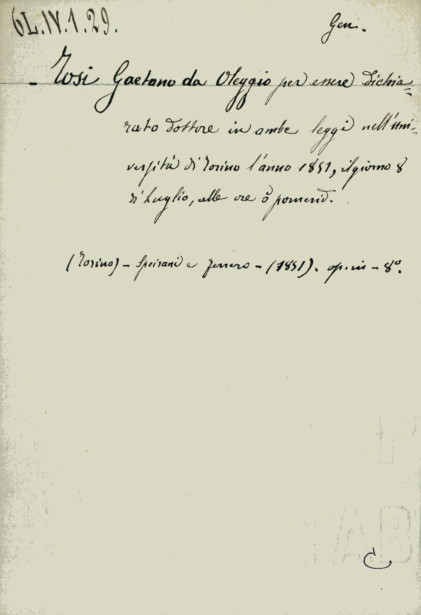 6L.IV.1.29.
Gen.
- Tosi Gaetano da Oleggio per essere dichia=
rato dottore in ambe leggi nell'uni-
versità di Torino l'anno 1851, il giorno 8
di Luglio, alle ore 5 pomerid.
(Torino) - Speirani e Ferrero - (1851). opusc - 8°.
C